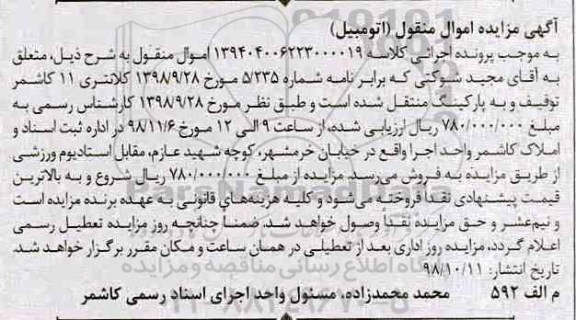 آگهی مزایده اموال منقول (اتومبیل)
به موجب پرونده اجرائی کلاسه ۱۳۹۴۰۴۰۰۶۲۲۳۰۰۰۰۱۹ اموال منقول به شرح ذیل، متعلق
به آقای مجید شوکتی که برابر نامه شماره ۵/۲۳۵ مورخ ۱۳۹۸/۹/۲۸ کلانتری ۱۱ کاشمر
توقیف و به پارکینگ منتقل شده است و طبق نظر مورخ ۱۳۹۸/۹/۲۸ کارشناس رسمی به
مبلغ ۷۸۰/۰۰۰/۰۰۰ ریال ارزیابی شده، از ساعت ۹ الی ۱۲ مورخ ۹۸/۱۱/۶ در اداره ثبت اسناد و
املاک کاشمر واحد اجرا واقع در خیابان خرمشهر، کوچه شهید عازم، مقابل استادیوم ورزشی
از طریق مزایده به فروش می‌رسد. مزایده از مبلغ ۷۸۰/۰۰۰/۰۰۰ ریال شروع و به بالاترین
قیمت پیشنهادی نقداً فروخته می‌شود و کلیه هزینه‌های قانونی به عهده برنده مزایده است
و نیم‌عشر و حق مزایده نقداً وصول خواهد شد. ضمناً چنانچه روز مزایده تعطیل رسمی
اعلام گردد، مزایده روز اداری بعد از تعطیلی در همان ساعت و مکان مقرر برگزار خواهد شد.
تاریخ انتشار: ۹۸/۱۰/۱۱
م الف ۵۹۲ محمد محمدزاده، مسئول واحد اجرای اسناد رسمی کاشمر